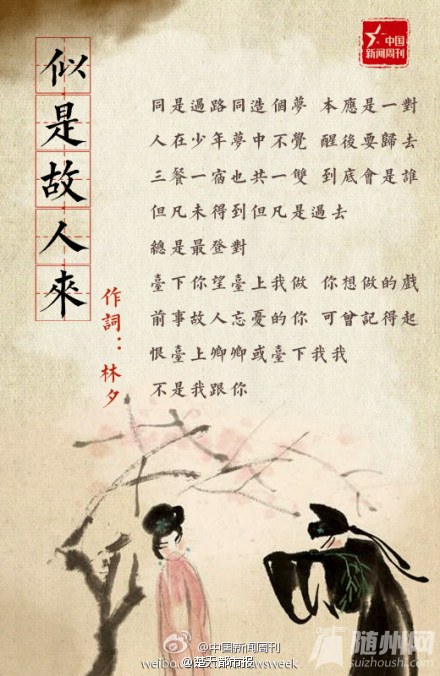 似是故人來
作詞：林夕
中国
新闻周刊
同是過路同造個夢 本應是一對
人在少年夢中不覺 醒後要歸去
三餐一宿也共一雙 到底會是誰
但凡未得到但凡是過去
總是最登對
臺下你望臺上我做 你想做的戲
前事故人忘憂的你 可曾記得起
恨臺上卿卿或臺下我我
不是我跟你
@中國新闻周刊
@楚天都市报
weibo.
wsweek
随州网
suizhoushi.com